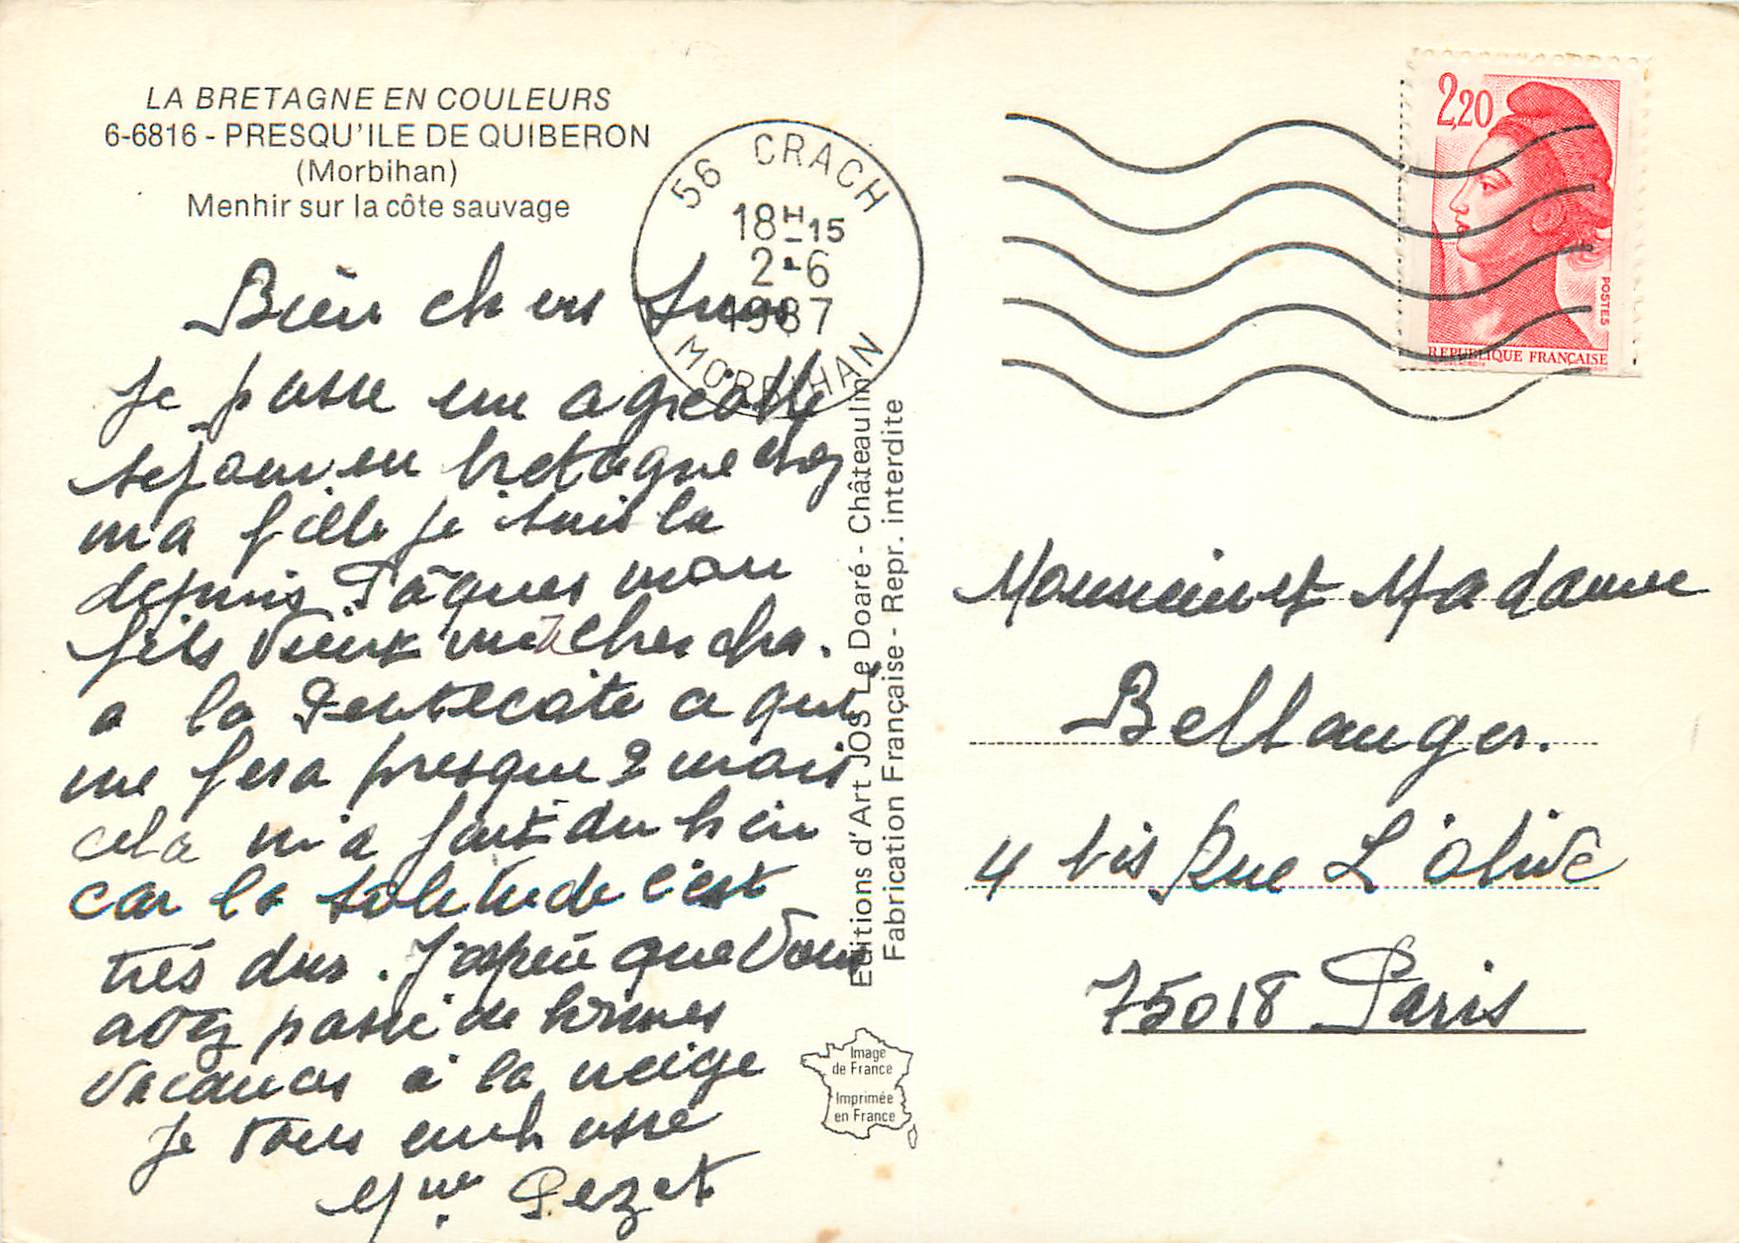 LA BRETAGNE EN COULEURS
6-6816 - PRESQU'ILE DE QUIBERON
(Morbihan)
Menhir sur la côte sauvage
Bien chers
Je passe un agréable
séjour en bretagne chez
ma fille je suis la
depuis Pâques mon
fils vient me chercher.
a la Pentecôte ce qui
me fera presque 2 mois
cela m'a fait du bien
car la solitude c'est
très dur. J'espère que vous
avez passé de bonnes
vacances à la neige
Je vous embrasse
Mme Pezet
56 CRACH
18H-15
2-6
1987
MORBIHAN
2,20
POSTES
REPUBLIQUE FRANÇAISE
Editions d'Art JOS Le Doaré - Châteaulin
Fabrication Française - Repr. interdite
Image
de France
Imprimée
en France
Monsieur et Madame
Bellanger.
4 bis Rue L'olive
75018 Paris